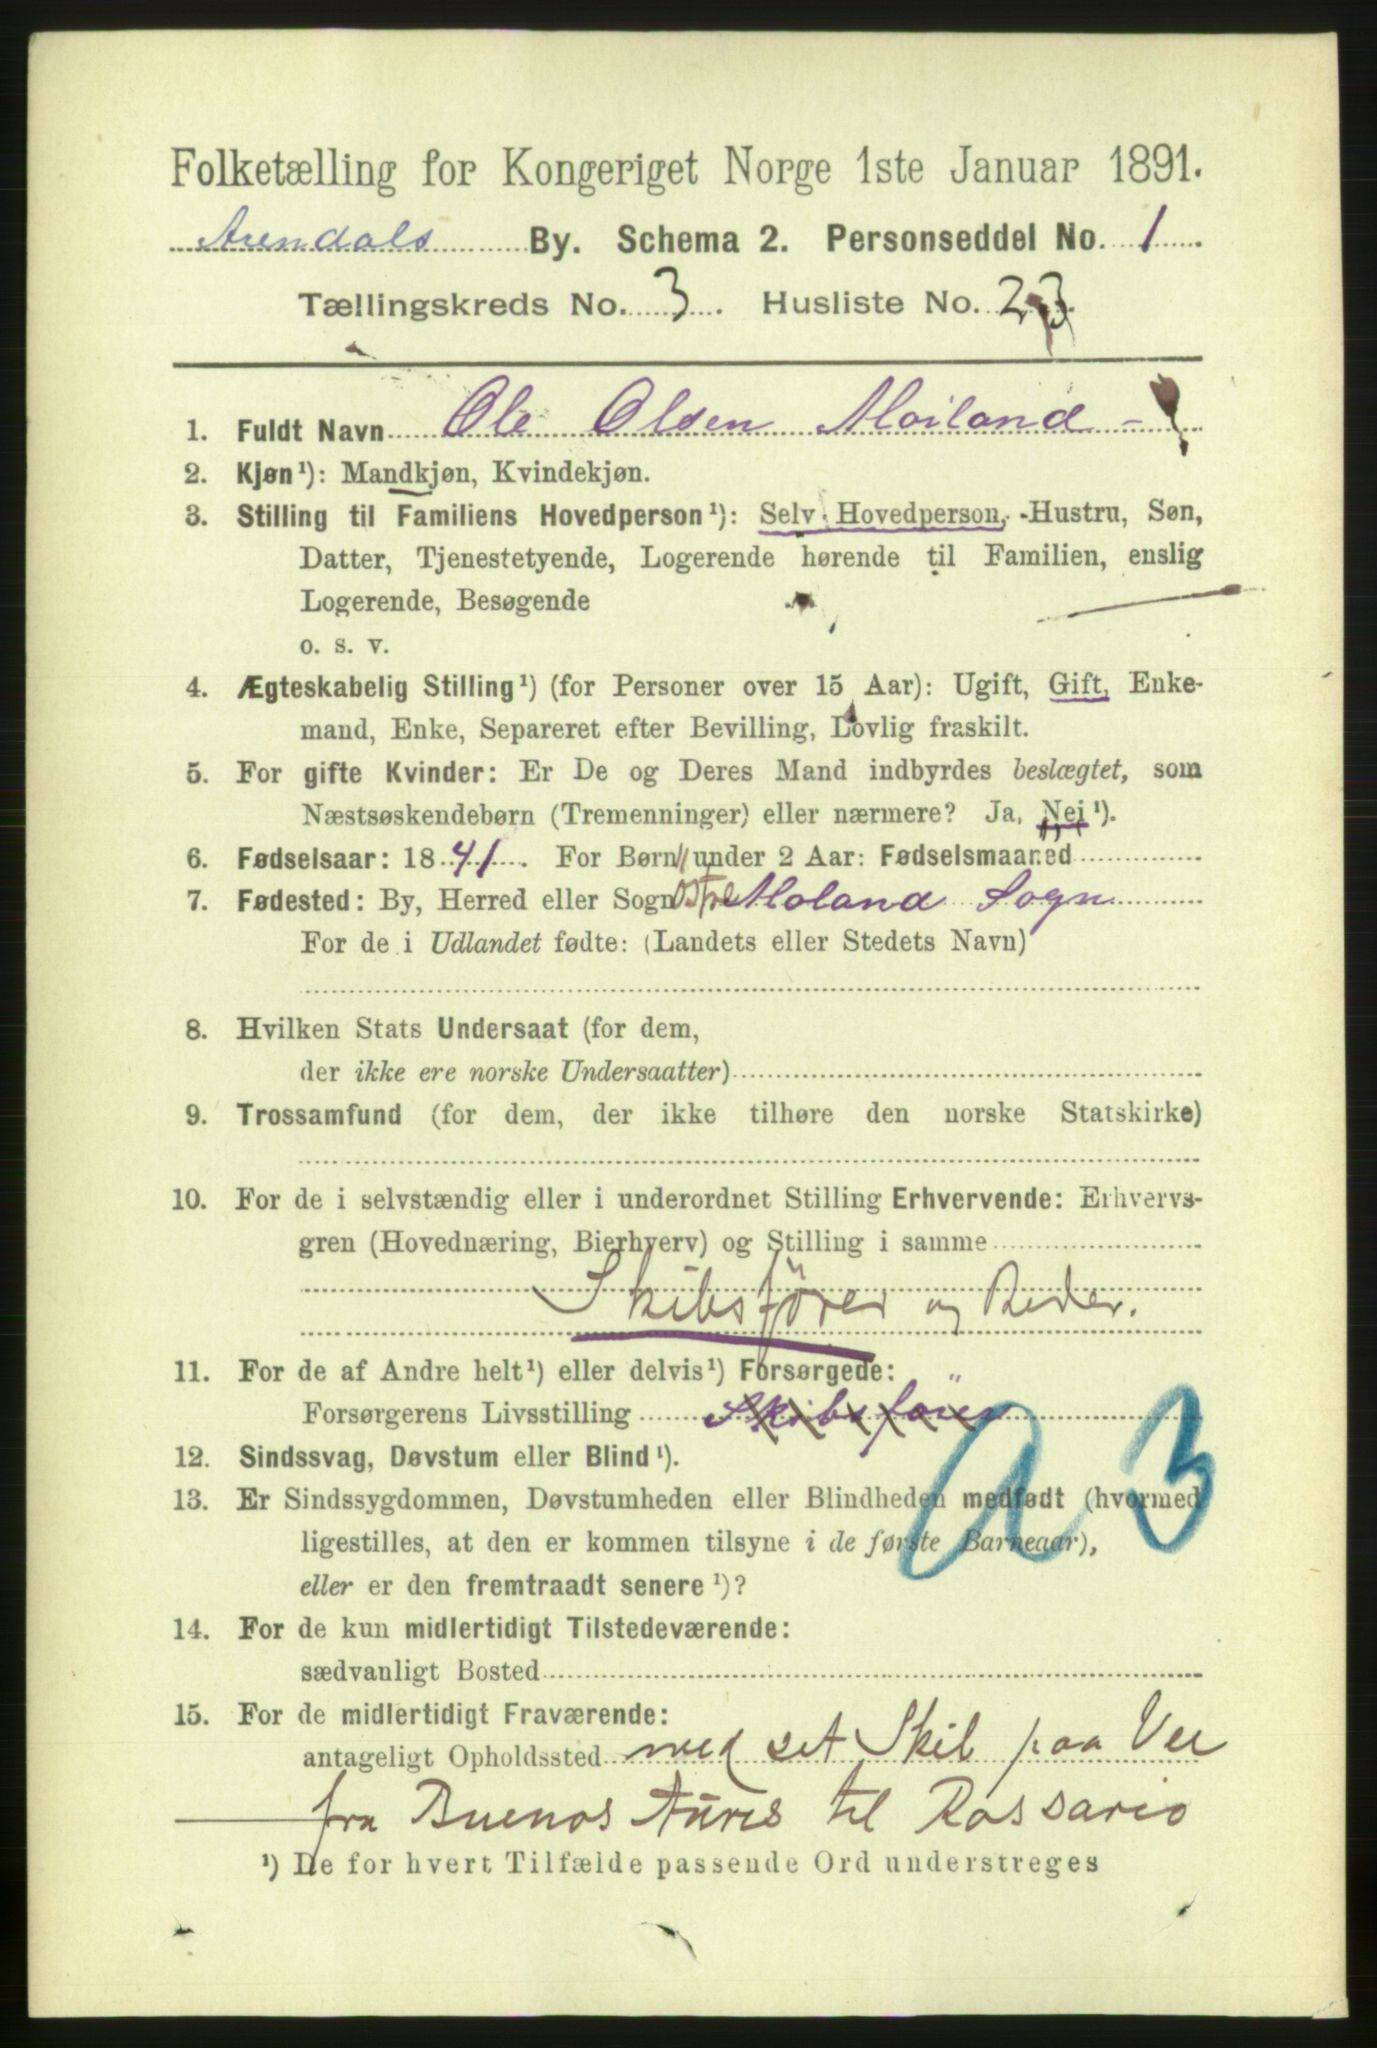 Folketælling for Kongeriget Norge 1ste Januar 1891.
Arendals By. Schema 2. Personseddel No. 1
Tællingskreds No. 3. Husliste No. 23.
1. Fuldt Navn Ole Olsen Moiland -
2. Kjøn¹): Mandkjøn, Kvindekjøn.
3. Stilling til Familiens Hovedperson¹): Selv Hovedperson, Hustru, Søn,
Datter, Tjenestetyende, Logerende hørende til Familien, enslig
Logerende, Besøgende
o. s. v.
4. Ægteskabelig Stilling¹) (for Personer over 15 Aar): Ugift, Gift, Enke-
mand, Enke, Separeret efter Bevilling, Lovlig fraskilt.
5. For gifte Kvinder: Er De og Deres Mand indbyrdes beslægtet, som
Næstsøskendebørn (Tremenninger) eller nærmere? Ja, Nei¹).
6. Fødselsaar: 1841. For Børn under 2 Aar: Fødselsmaaned
7. Fødested: By, Herred eller Sogn Østre Moland Sogn
For de i Udlandet fødte: (Landets eller Stedets Navn)
8. Hvilken Stats Undersaat (for dem,
der ikke ere norske Undersaatter)
9. Trossamfund (for dem, der ikke tilhøre den norske Statskirke)
10. For de i selvstændig eller i underordnet Stilling Erhvervende: Erhvervs-
gren (Hovednæring, Bierhverv) og Stilling i samme
Skibsförer og Reder.
11. For de af Andre helt¹) eller delvis¹) Forsørgede:
Forsørgerens Livsstilling Skibsförer
12. Sindssvag, Døvstum eller Blind¹).
13. Er Sindssygdommen, Døvstumheden eller Blindheden medfødt (hvormed
ligestilles, at den er kommen tilsyne i de første Barneaar),
eller er den fremtraadt senere¹)?
a 3
14. For de kun midlertidigt Tilstedeværende:
sædvanligt Bosted
15. For de midlertidigt Fraværende:
antageligt Opholdssted med set Skib paa Vei
fra Buenos Aüres til Rossario
¹) De for hvert Tilfælde passende Ord understreges